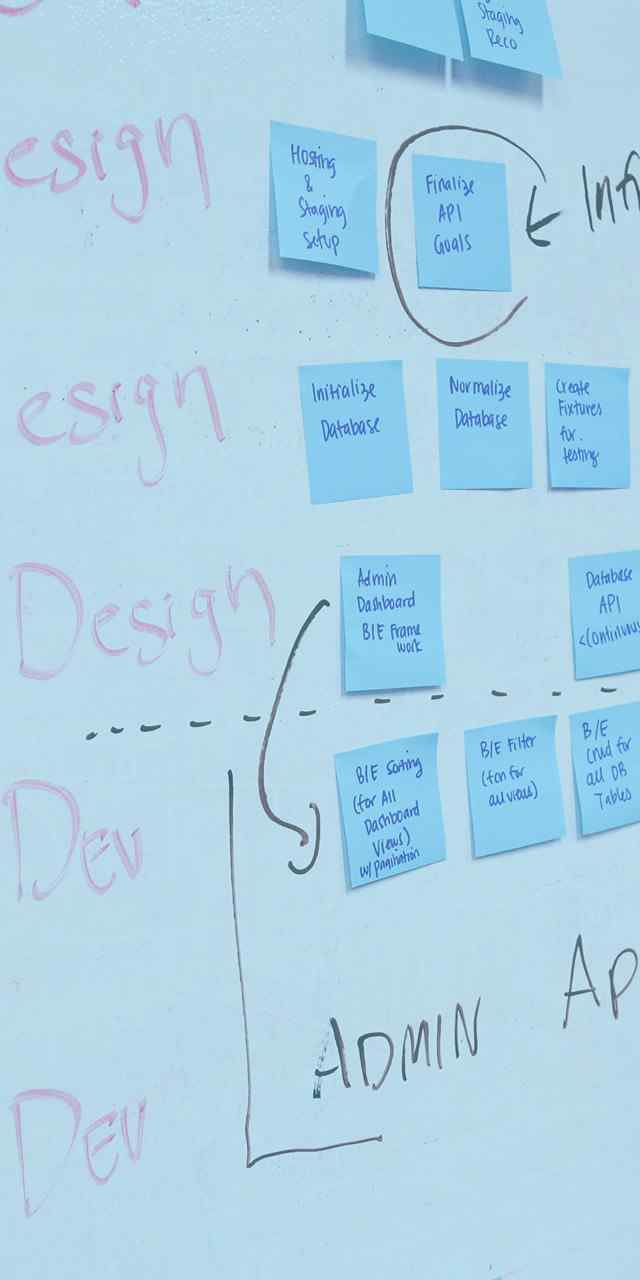 Staging
Reco
esign
Hosting
&
Staging
Setup
Finalize
API
Goals
esign
Initialize
Database
Normalize
Database
Create
Fixtures
for.
testing
Design
Admin
Dashboard
B/E Frame
work
Database
API
<(continuous
Dev
B/E Sorting
(for All
Dashboard
Views)
w/ pagination
B/E Filter
(fcn for
all views)
B/E
Crud for
all DB
Tables
ADMIN
AP
Dev